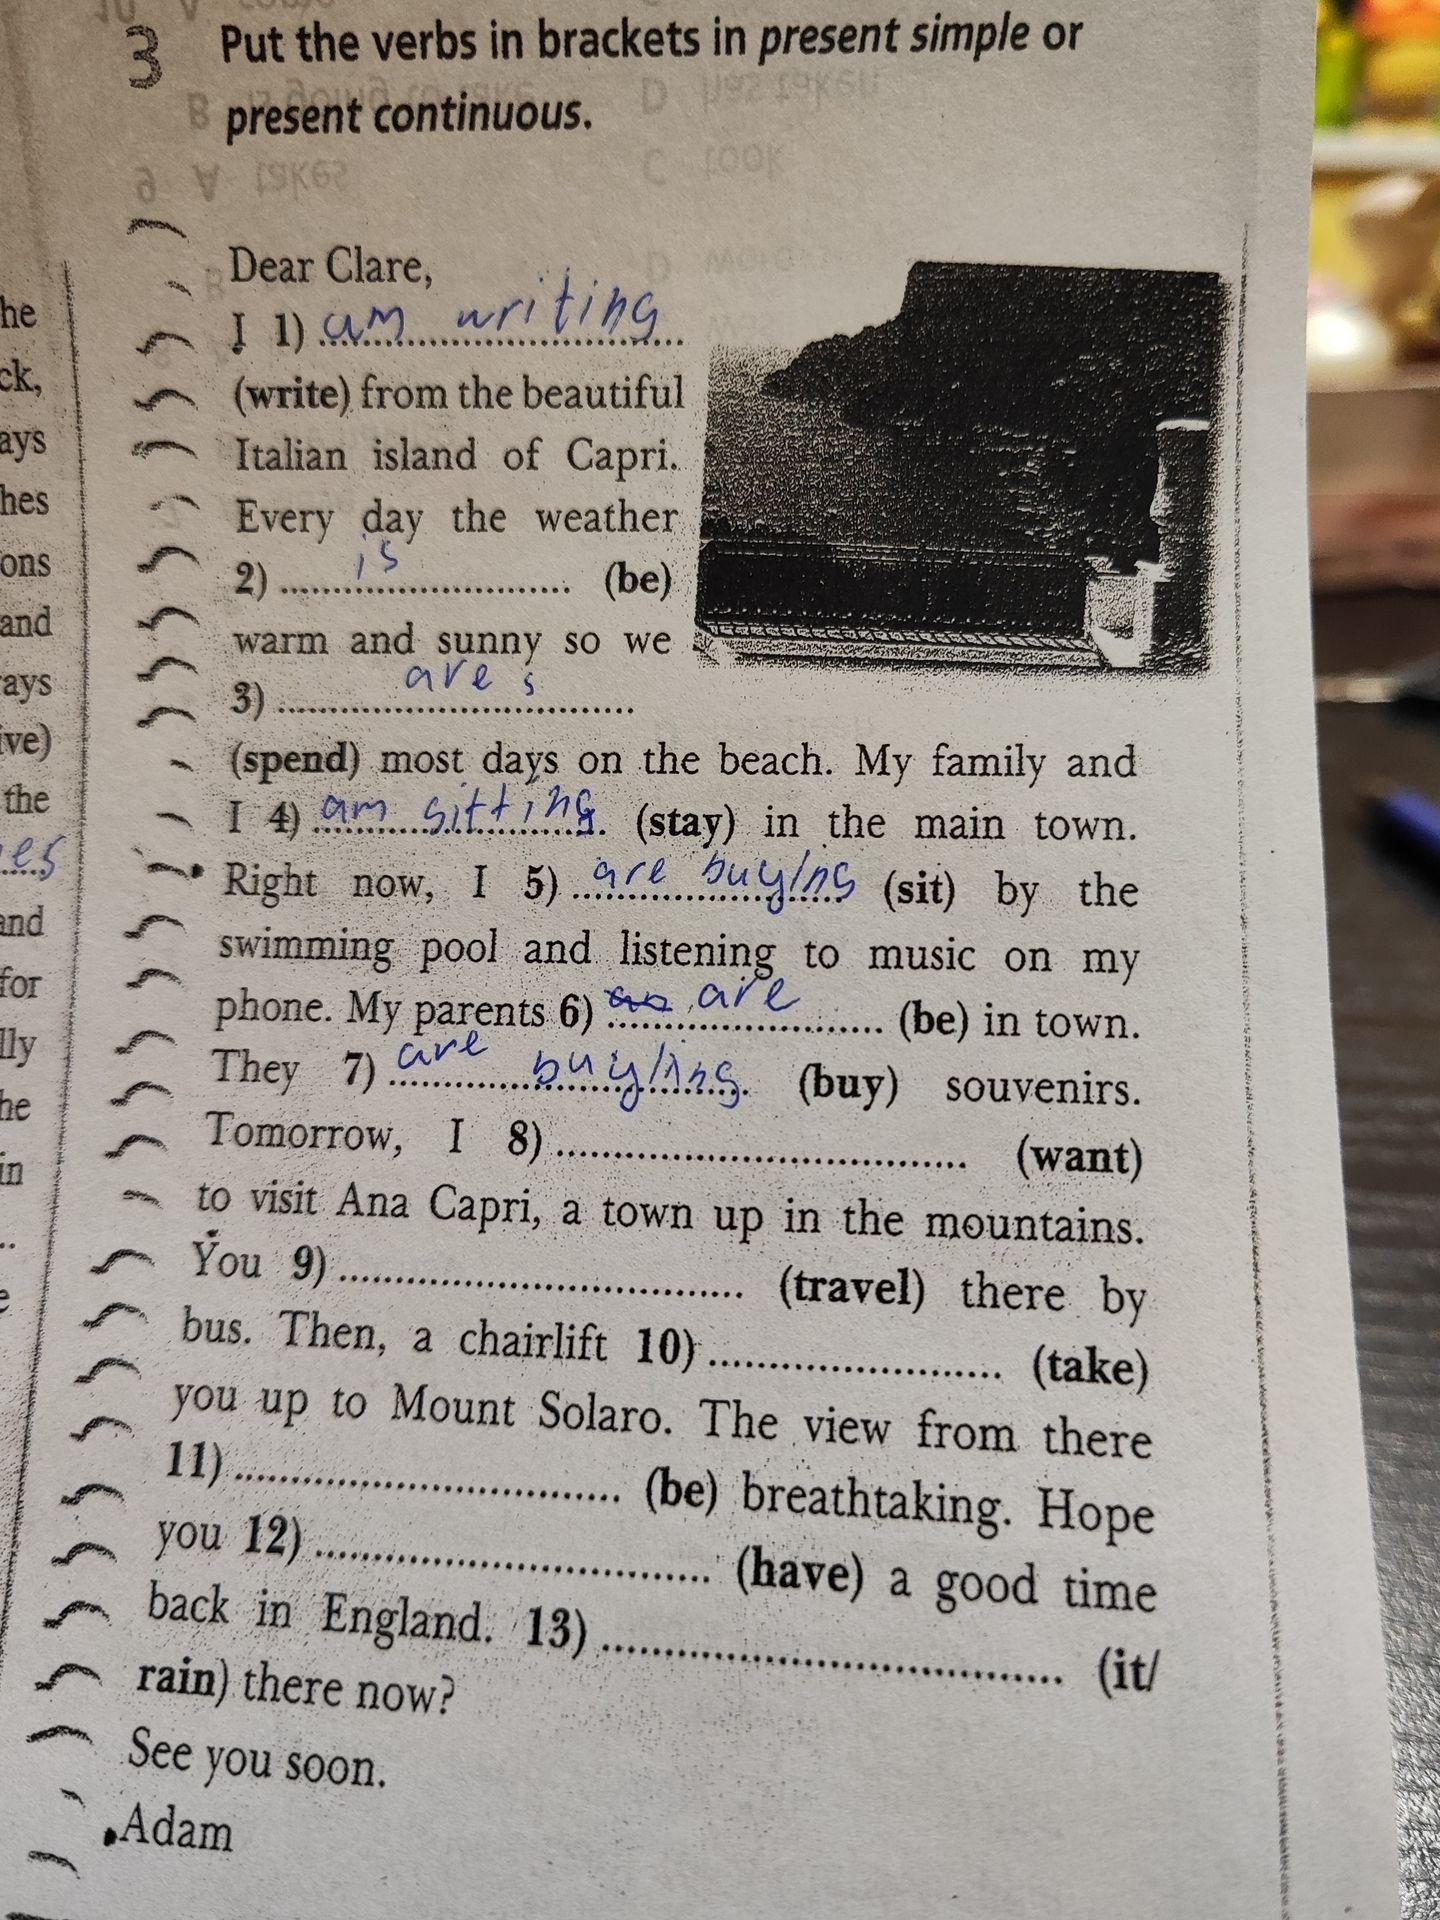 3 Put the verbs in brackets in present simple or
present continuous.
Dear Clare,
I 1) am writing
(write) from the beautiful
Italian island of Capri.
Every day the weather
2) is (be)
warm and sunny so we
3) are s
(spend) most days on the beach. My family and
I 4) am sitting (stay) in the main town.
Right now, I 5) are buying (sit) by the
swimming pool and listening to music on my
phone. My parents 6) are (be) in town.
They 7) are buying (buy) souvenirs.
Tomorrow, I 8) (want)
to visit Ana Capri, a town up in the mountains.
You 9) (travel) there by
bus. Then, a chairlift 10) (take)
you up to Mount Solaro. The view from there
11) (be) breathtaking. Hope
you 12) (have) a good time
back in England. 13) (it/
rain) there now?
See you soon.
Adam
he
ck,
ays
hes
ons
and
ays
ive)
the
es
and
for
lly
he
in